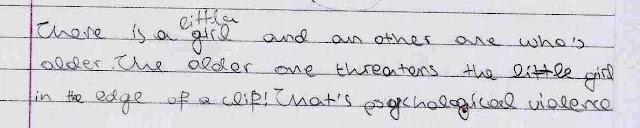 There is a little girl and an other one who's
older. The older one threatens the little girl
in the edge of a clif! That's psychological violence